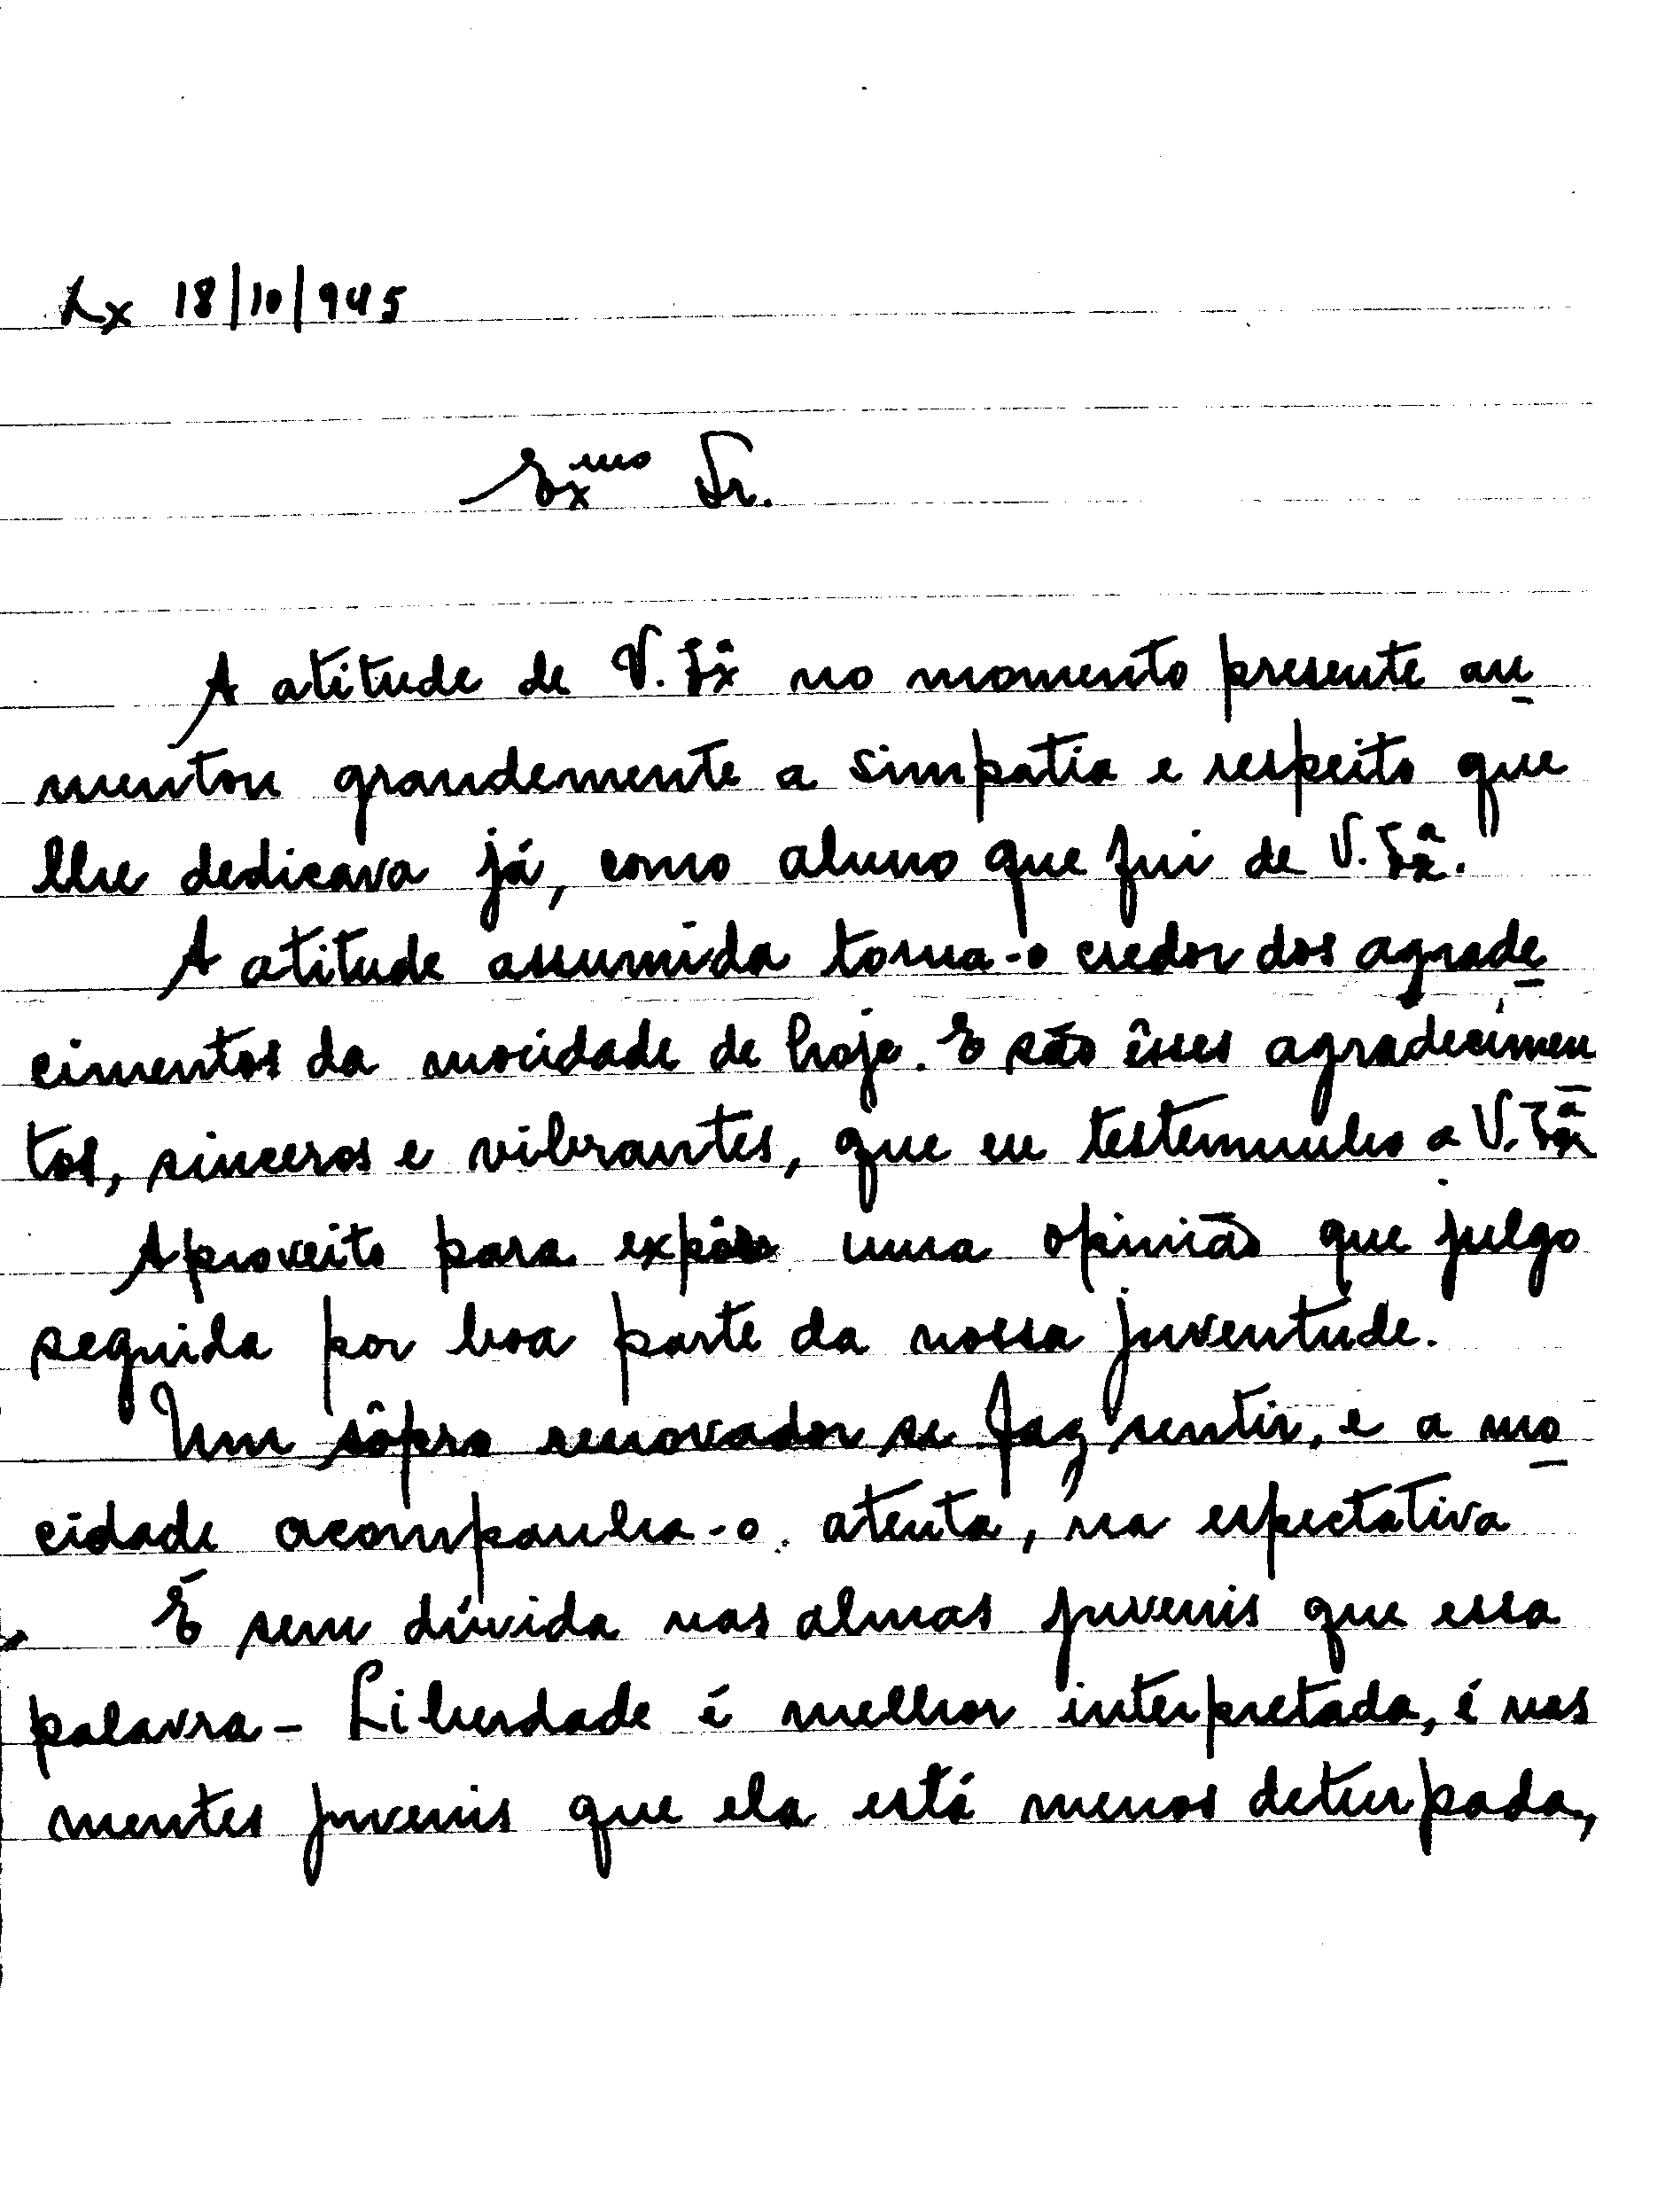 Lx 18/10/945
Exmo Sr.
A atitude de V. Exª no momento presente au
mentou grandemente a simpatia e respeito que
lhe dedicava já, como aluno que fui de V. Exª.
A atitude assumida torna-o credor dos agrade
cimentos da mocidade de hoje. E são êsses agradecimen
tos, sinceros e vibrantes, que eu testemunho a V. Exª
Aproveito para expôr uma opinião que julgo
seguida por boa parte da nossa juventude.
Um sôpro renovador se faz sentir, e a mo
cidade acompanha-o. atenta, na espectativa
É sem dúvida nas almas juvenis que essa
palavra - Liberdade é melhor interpretada, é nas
mentes juvenis que ela está menos deturpada,